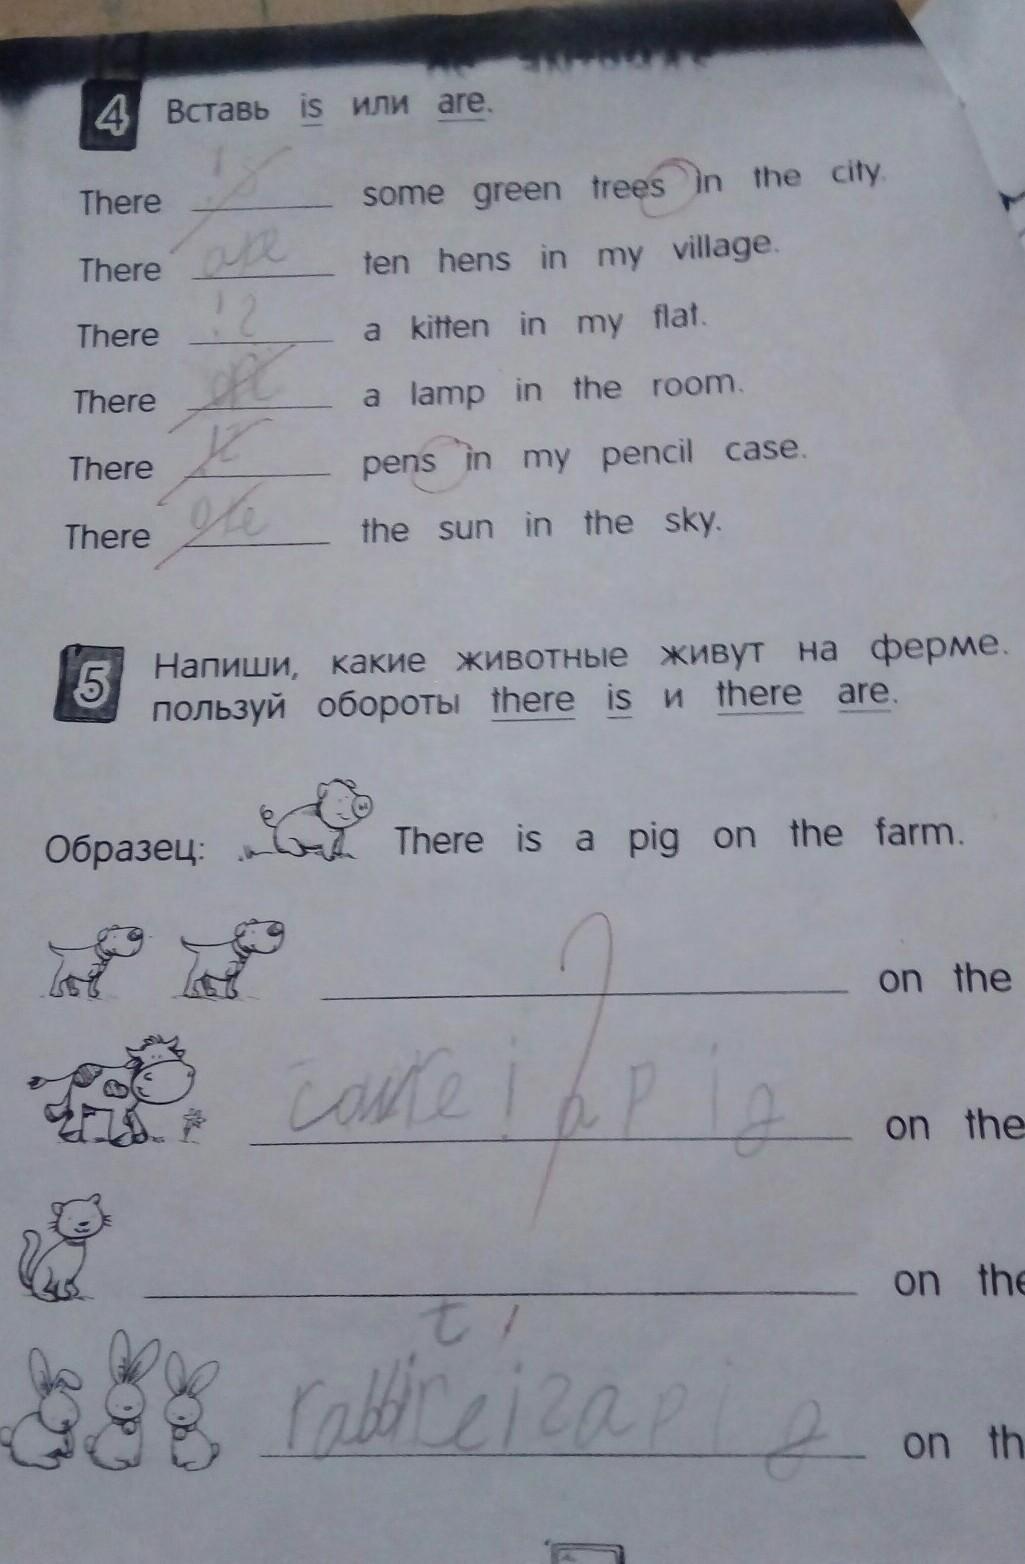 4 Вставь is или are.
There is some green trees in the city.
There are ten hens in my village.
There is a kitten in my flat.
There are a lamp in the room.
There is pens in my pencil case.
There are the sun in the sky.
5 Напиши, какие животные живут на ферме.
пользуй обороты there is и there are.
Образец: There is a pig on the farm.
on the
i a pig on the
on the
t
i2apig on th